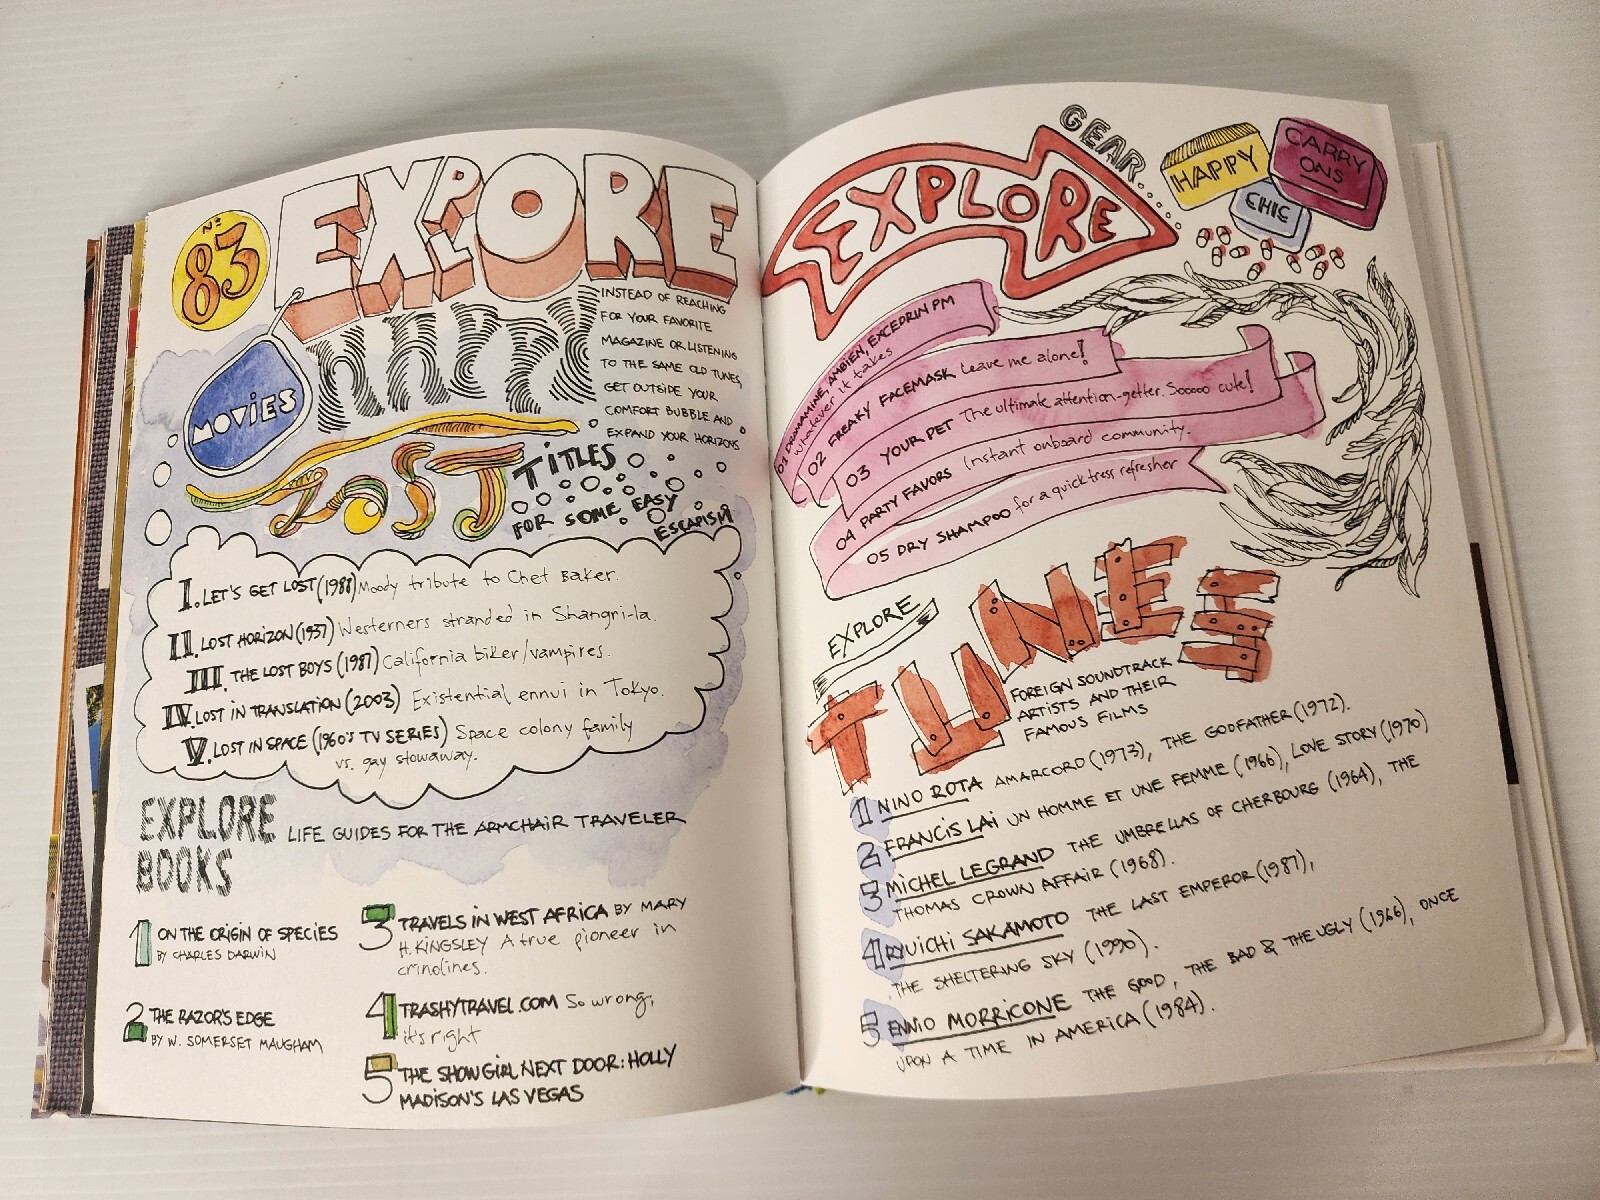 Nº 83
EXPLORE
MOVIES
INSTEAD OF REACHING
FOR YOUR FAVORITE
MAGAZINE OR LISTENING
TO THE SAME OLD TUNES,
GET OUTSIDE YOUR
COMFORT BUBBLE AND
EXPAND YOUR HORIZONS
LOST TITLES
FOR SOME EASY
ESCAPISM
I. LET'S GET LOST (1988) Moody tribute to Chet Baker.
II. LOST HORIZON (1937) Westerners stranded in Shangri-la.
III. THE LOST BOYS (1987) California biker/vampires.
IV. LOST IN TRANSLATION (2003) Existential ennui in Tokyo.
V. LOST IN SPACE (1960'S TV SERIES) Space colony family
vs. gay stowaway.
EXPLORE
BOOKS
LIFE GUIDES FOR THE ARMCHAIR TRAVELER
1 ON THE ORIGIN OF SPECIES
BY CHARLES DARWIN
2 THE RAZOR'S EDGE
BY W. SOMERSET MAUGHAM
3 TRAVELS IN WEST AFRICA BY MARY
H. KINGSLEY A true pioneer in
crinolines.
4 TRASHYTRAVEL.COM So wrong,
it's right
5 THE SHOWGIRL NEXT DOOR: HOLLY
MADISON'S LAS VEGAS
EXPLORE
GEAR...
HAPPY
CHIC
CARRY
ONS
01 DRAMAMINE, AMBIEN, EXCEDRIN PM
whatever it takes
02 FREAKY FACEMASK Leave me alone!
03 YOUR PET The ultimate attention-getter. Sooooo cute!
04 PARTY FAVORS Instant onboard community.
05 DRY SHAMPOO for a quick tress refresher
EXPLORE
TUNES
FOREIGN SOUNDTRACK
ARTISTS AND THEIR
FAMOUS FILMS
1 NINO ROTA AMARCORD (1973), THE GODFATHER (1972).
2 FRANCIS LAI UN HOMME ET UNE FEMME (1966), LOVE STORY (1970)
3 MICHEL LEGRAND THE UMBRELLAS OF CHERBOURG (1964), THE
THOMAS CROWN AFFAIR (1968).
4 RYUICHI SAKAMOTO THE LAST EMPEROR (1987),
THE SHELTERING SKY (1990).
5 ENNIO MORRICONE THE GOOD, THE BAD & THE UGLY (1966), ONCE
UPON A TIME IN AMERICA (1984).